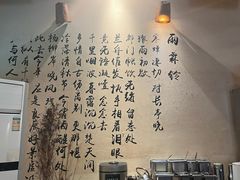 雨霖铃
寒蝉凄切 对长亭晚
骤雨初歇
都门帐饮无绪 留恋处
兰舟催发 执手相看泪眼
竟无语凝噎 念去去
千里烟波 暮霭沉沉楚天阔
多情自古伤离别 更那堪
冷落清秋节 今宵酒醒何处
杨柳岸 晓风残月
此去经年 应是良辰好景虚
纵有千
与何人